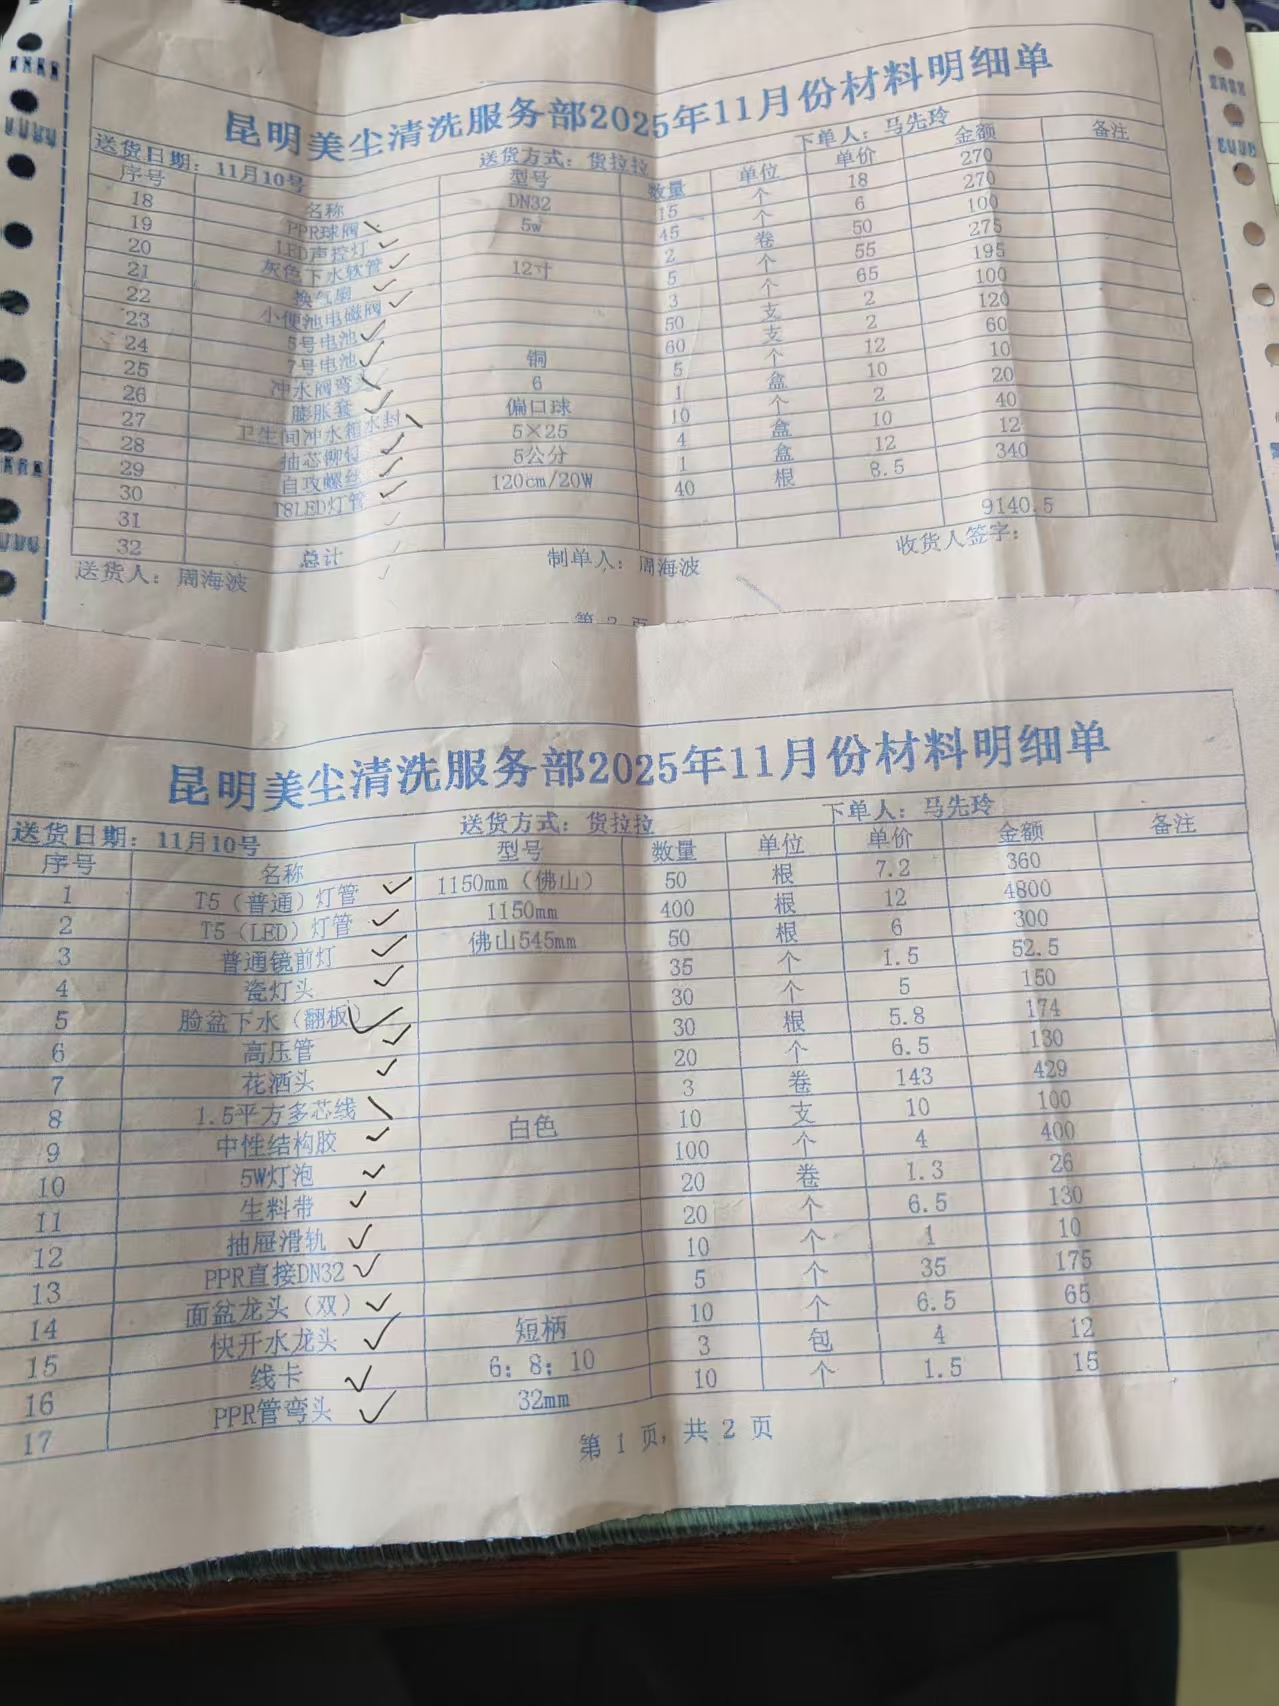 昆明美尘清洗服务部2025年11月份材料明细单
送货日期：11月10号 送货方式：货拉拉 下单人：马先玲
序号 名称 型号 数量 单位 单价 金额 备注
18 PPR球阀 DN32 15 个 18 270
19 LED声控灯 5w 45 个 6 270
20 灰色下水软管 2 卷 50 100
21 换气扇 12寸 5 个 55 275
22 小便池电磁阀 3 个 65 195
23 5号电池 50 支 2 100
24 7号电池 60 支 2 120
25 冲水阀弯头 铜 5 个 12 60
26 膨胀套 6 1 盒 10 10
27 卫生间冲水箱水封 偏口球 10 个 2 20
28 抽芯铆钉 5×25 4 盒 10 40
29 自攻螺丝 5公分 1 盒 12 12
30 T8LED灯管 120cm/20W 40 根 8.5 340
31
32 总计 9140.5
送货人：周海波 制单人：周海波 收货人签字：
第 2 页
昆明美尘清洗服务部2025年11月份材料明细单
送货日期：11月10号 送货方式：货拉拉 下单人：马先玲
序号 名称 型号 数量 单位 单价 金额 备注
1 T5（普通）灯管 1150mm（佛山） 50 根 7.2 360
2 T5（LED）灯管 1150mm 400 根 12 4800
3 普通镜前灯 佛山545mm 50 根 6 300
4 瓷灯头 35 个 1.5 52.5
5 脸盆下水（翻板） 30 个 5 150
6 高压管 30 根 5.8 174
7 花洒头 20 个 6.5 130
8 1.5平方多芯线 3 卷 143 429
9 中性结构胶 白色 10 支 10 100
10 5W灯泡 100 个 4 400
11 生料带 20 卷 1.3 26
12 抽屉滑轨 20 个 6.5 130
13 PPR直接DN32 10 个 1 10
14 面盆龙头（双） 5 个 35 175
15 快开水龙头 短柄 10 个 6.5 65
16 线卡 6；8；10 3 包 4 12
17 PPR管弯头 32mm 10 个 1.5 15
第 1 页，共 2 页